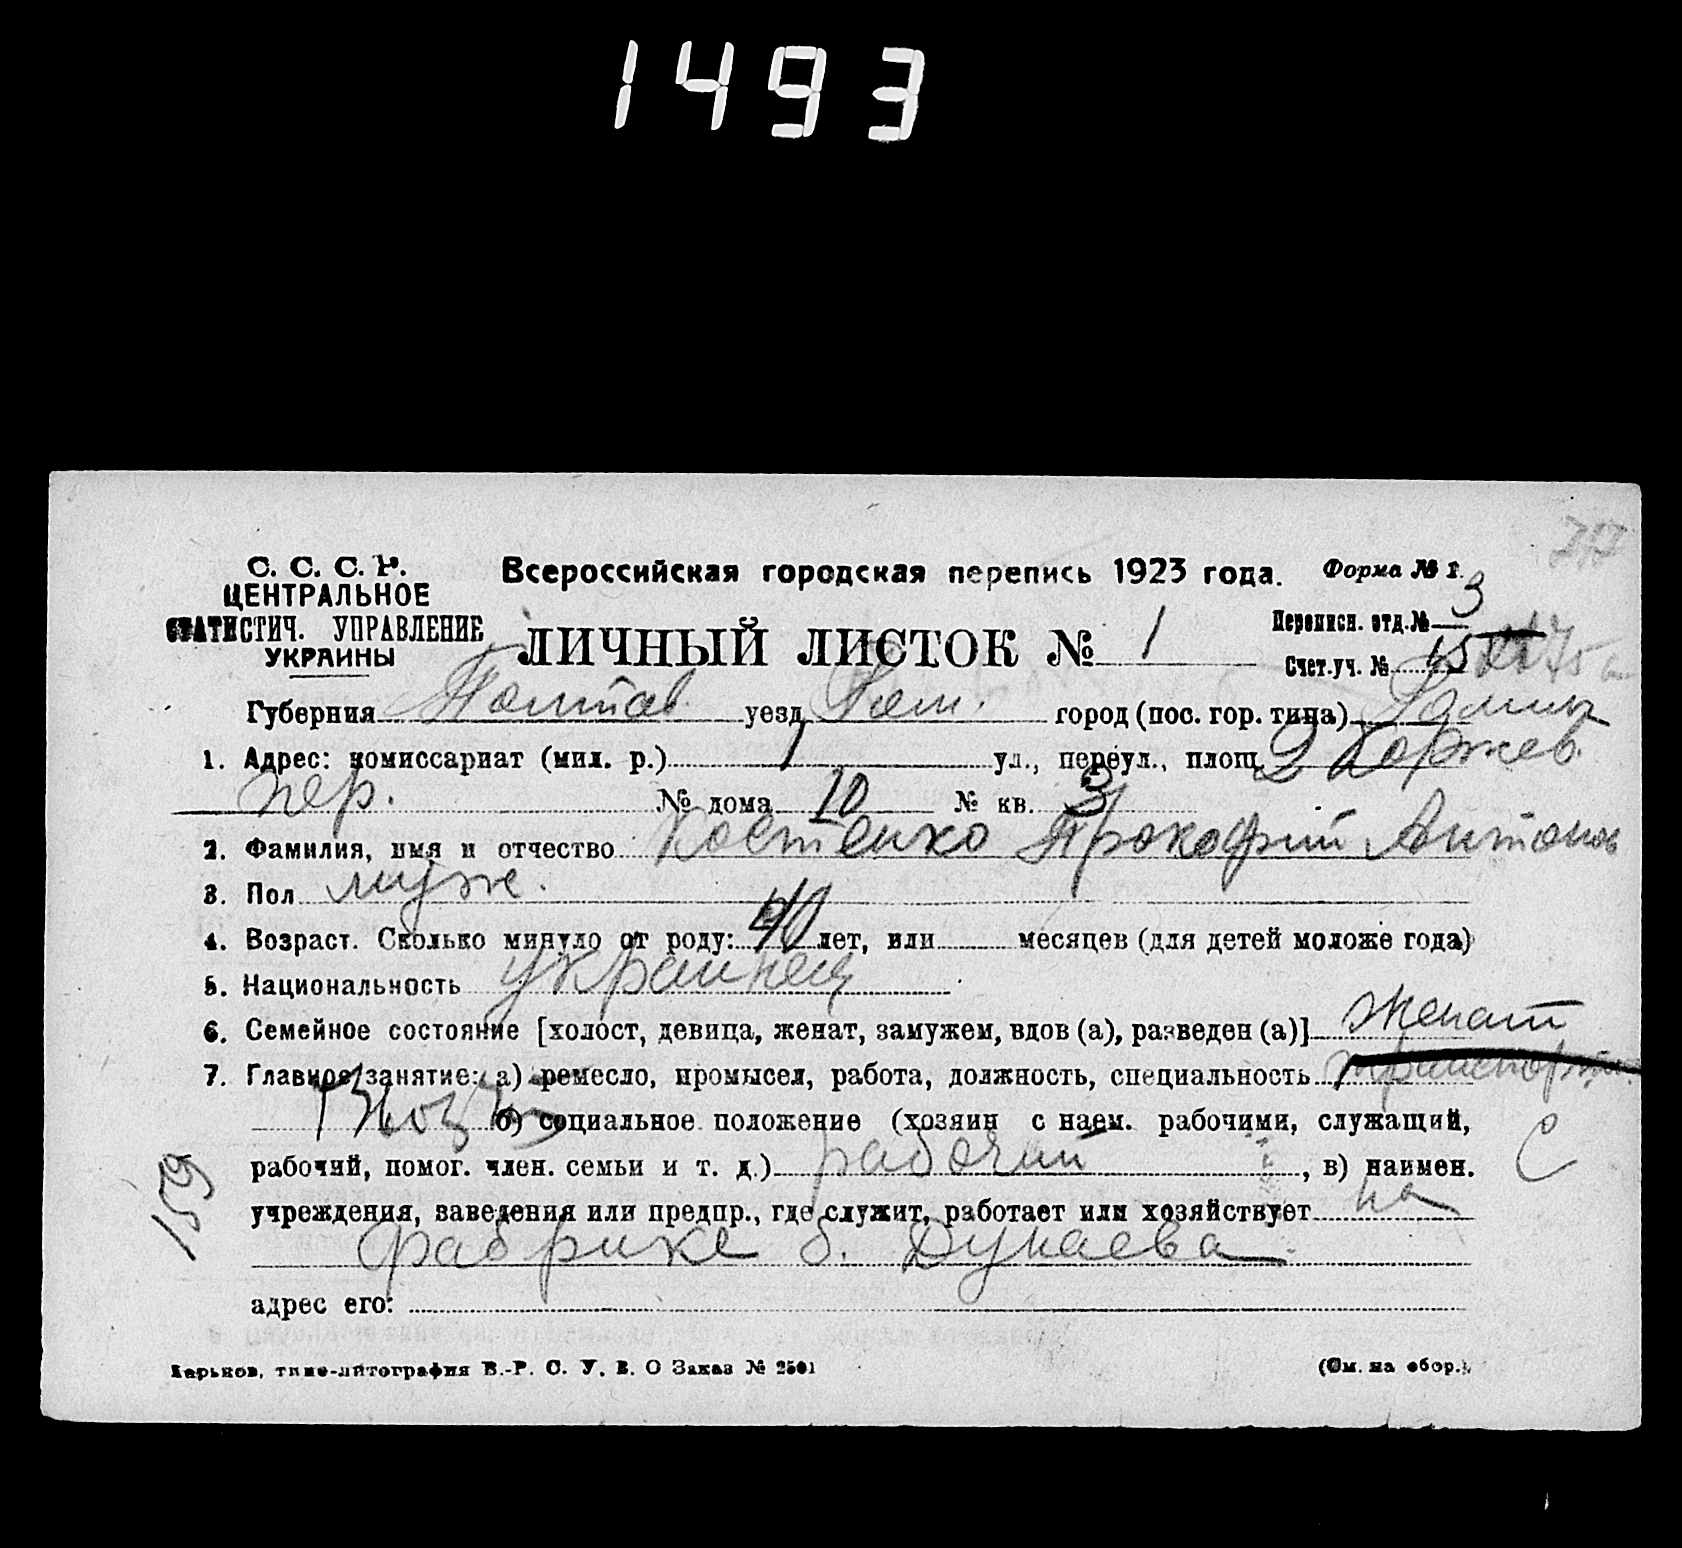 1493
С. С. С. Р.
ЦЕНТРАЛЬНОЕ
СТАТИСТИЧ. УПРАВЛЕНИЕ
УКРАИНЫ
Всероссийская городская перепись 1923 года.
Форма № 1.
ЛИЧНЫЙ ЛИСТОК № 1
Переписн. отд. № 3
Счет. уч. № 15
Губерния Полтав. уезд Ром. город (пос. гор. типа) Ромны
1. Адрес: комиссариат (мил. р.) 1 ул., переул., площ. 2 Коржев.
пер. № дома 10 № кв. 3
2. Фамилия, имя и отчество Костенко Прокофий Антонов
3. Пол муж.
4. Возраст. Сколько минуло от роду: 40 лет, или месяцев (для детей моложе года)
5. Национальность украинец
6. Семейное состояние [холост, девица, женат, замужем, вдов (а), разведен (а)] женат
7. Главное занятие: а) ремесло, промысел, работа, должность, специальность
б) социальное положение (хозяин с наем. рабочими, служащий,
рабочий, помог. член. семьи и т. д.) рабочий, в) наимен.
учреждения, заведения или предпр., где служит, работает или хозяйствует на
фабрике б. Дунаева.
адрес его:
159
С
Харьков, типо-литография В.-Р. С. У. В. О Заказ № 2501
(См. на обор.).